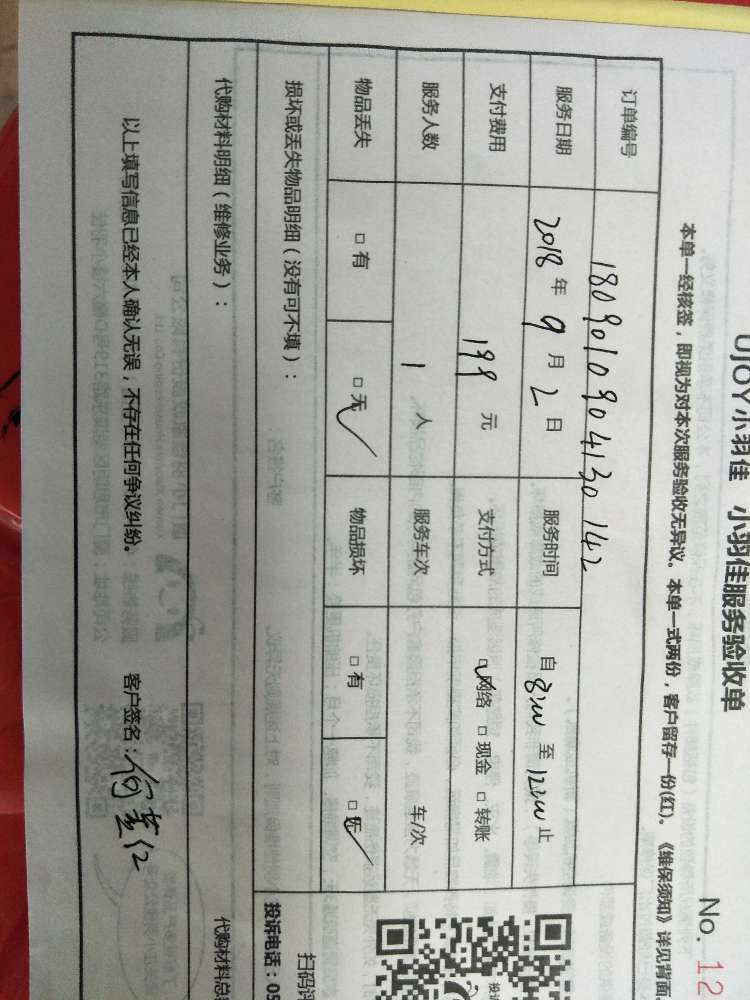 UJOY小羽佳 小羽佳服务验收单
No. 12
本单一经核签，即视为对本次服务验收无异议。本单一式两份，客户留存一份(红)。《维保须知》详见背面
订单编号 1809010904130142
服务日期 2018 年 9 月 2 日 服务时间 自 8:00 至 12:00 止
支付费用 199 元 支付方式 □网络 □现金 □转账
服务人数 1 人 服务车次 车/次
物品丢失 □有 □无 物品损坏 □有 □无
损坏或丢失物品明细（没有可不填）：
代购材料明细（维修业务）： 代购材料总
以上填写信息已经本人确认无误，不存在任何争议纠纷。 客户签名：何
扫码评
投诉电话：05